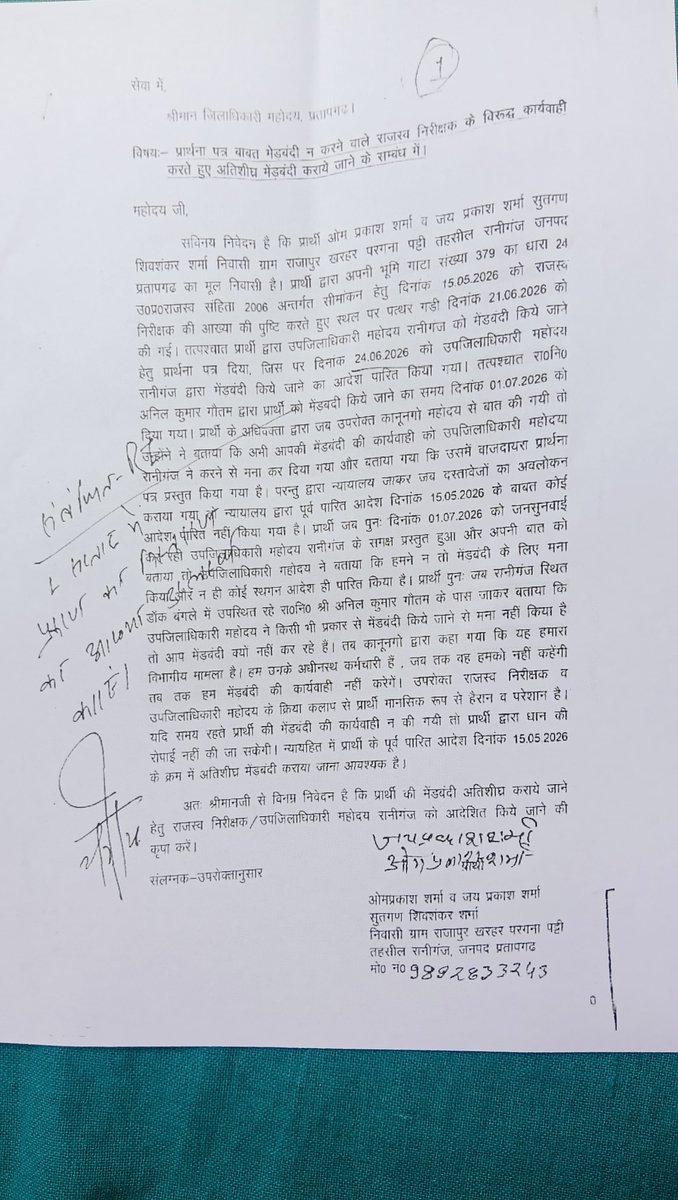 1
सेवा में,
श्रीमान जिलाधिकारी महोदय, प्रतापगढ।
विषय:– प्रार्थना पत्र बाबत मेडबंदी न करने वाले राजस्व निरीक्षक के विरूद्ध कार्यवाही
करते हुए अतिशीघ्र मेंडबंदी कराये जाने के सम्बंध में।
महोदय जी,
सविनय निवेदन है कि प्रार्थी ओम प्रकाश शर्मा व जय प्रकाश शर्मा सुतगण
शिवशंकर शर्मा निवासी ग्राम राजापुर खरहर परगना पट्टी तहसील रानीगंज जनपद
प्रतापगढ का मूल निवासी है। प्रार्थी द्वारा अपनी भूमि गाटा संख्या 379 का धारा 24
उ०प्र०राजस्व संहिता 2006 अन्तर्गत सीमांकन हेतु दिनांक 15.05.2026 को राजस्व
निरीक्षक की आख्या की पुष्टि करते हुए स्थल पर पत्थर गडी दिनांक 21.06.2026 को
की गई। तत्पश्चात प्रार्थी द्वारा उपजिलाधिकारी महोदय रानीगंज को मेंडबंदी किये जाने
हेतु प्रार्थना पत्र दिया, जिस पर दिनाक 24.06.2026 को उपजिलाधिकारी महोदय
रानीगंज द्वारा मेंडबंदी किये जाने का आदेश पारित किया गया। तत्पश्चात रा०नि०
अनिल कुमार गौतम द्वारा प्रार्थी को मेंडबदी किये जाने का समय दिनांक 01.07.2026 को
दिया गया। प्रार्थी के अधिवक्ता द्वारा जब उपरोक्त कानूनगो महोदय से बात की गयी तो
उन्होंने ने बताया कि अभी आपकी मेंडबंदी की कार्यवाही को उपजिलाधिकारी महोदया
रानीगंज ने करने से मना कर दिया गया और बताया गया कि उसमें बाजदायरा प्रार्थना
पत्र प्रस्तुत किया गया है। परन्तु द्वारा न्यायालय जाकर जब दस्तावेजों का अवलोकन
कराया गया तो न्यायालय द्वारा पूर्व पारित आदेश दिनांक 15.05.2026 के बाबत कोई
आदेश पारित नहीं किया गया है। प्रार्थी जब पुनः दिनांक 01.07.2026 को जनसुनवाई
रही उपजिलाधिकारी महोदय रानीगंज के समक्ष प्रस्तुत हुआ और अपनी बात को
बताया तो उपजिलाधिकारी महोदय ने बताया कि हमने न तो मेंडबंदी के लिए मना
किया और न ही कोई स्थगन आदेश ही पारित किया है। प्रार्थी पुनः जब रानीगंज स्थित
डॉक बंगले में उपस्थित रहे रा०नि० श्री अनिल कुमार गौतम के पास जाकर बताया कि
उपजिलाधिकारी महोदय ने किसी भी प्रकार से मेंडबंदी किये जाने से मना नहीं किया है
तो आप मेंडबंदी क्यों नहीं कर रहे है। तब कानूनगो द्वारा कहा गया कि यह हमारा
विभागीय मामला है। हम उनके अधीनस्थ कर्मचारी हैं , जब तक वह हमको नहीं कहेंगी
तब तक हम मेंडबंदी की कार्यवाही नहीं करेगें। उपरोक्त राजस्व निरीक्षक व
उपजिलाधिकारी महोदय के क्रिया कलाप से प्रार्थी मानसिक रूप से हैरान व परेशान है।
यदि समय रहते प्रार्थी की मेंडबंदी की कार्यवाही न की गयी तो प्रार्थी द्वारा धान की
रोपाई नहीं की जा सकेगी। न्यायहित में प्रार्थी के पूर्व पारित आदेश दिनांक 15.05.2026
के क्रम में अतिशीघ्र मेंडबंदी कराया जाना आवश्यक है।
अतः श्रीमानजी से विनम्र निवेदन है कि प्रार्थी की मेंडबंदी अतिशीघ्र कराये जाने
हेतु राजस्व निरीक्षक/उपजिलाधिकारी महोदय रानीगंज को आदेशित किये जाने की
कृपा करें।
जयप्रकाश शर्मा
ओम प्रकाश शर्मा
संलग्नक-उपरोक्तानुसार
ओमप्रकाश शर्मा व जय प्रकाश शर्मा
सुतगण शिवशंकर शर्मा
निवासी ग्राम राजापुर खरहर परगना पट्टी
तहसील रानीगंज, जनपद प्रतापगढ
मो० न० 9892833243